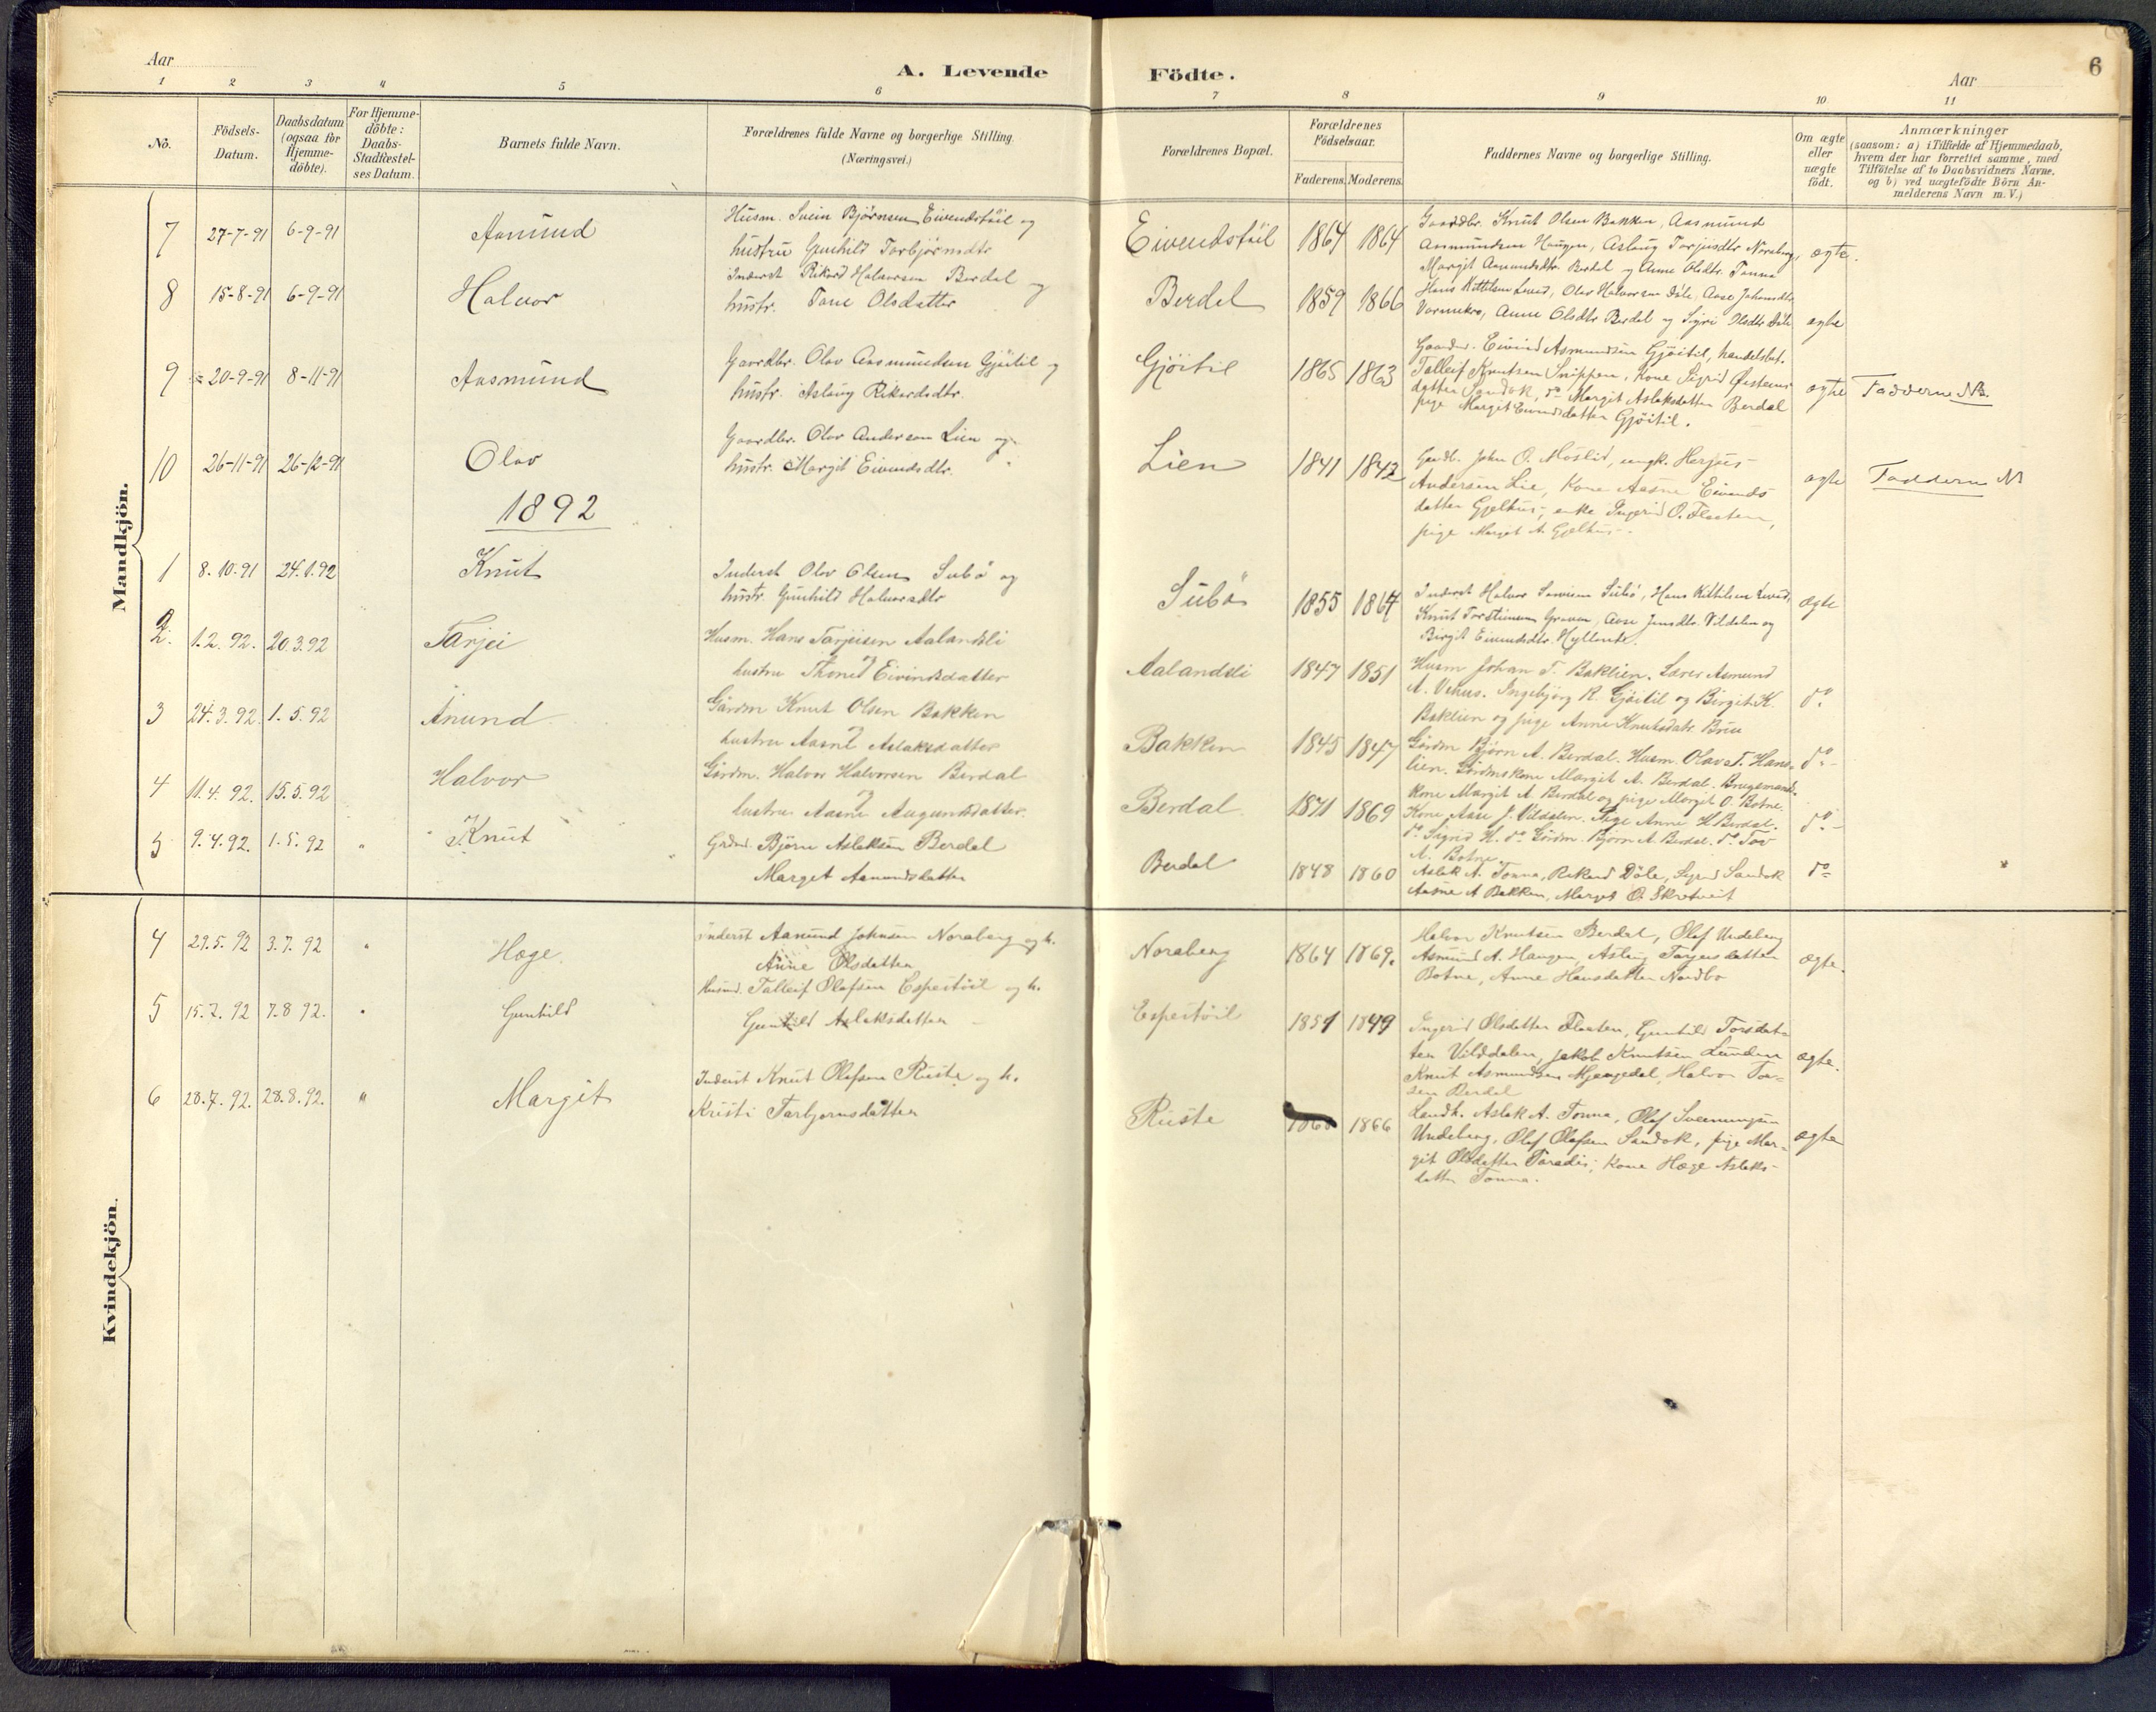 Aar
A. Levende Födte.
Aar
6
1 2 3 4 5 6 7 8 9 10 11
No.
Födsels-Datum.
Daabsdatum (ogsaa for Hjemme-döbte).
For Hjemme-döbte: Daabs-Stadfæstel-ses Datum.
Barnets fulde Navn.
Forældrenes fulde Navne og borgerlige Stilling. (Næringsvei.)
Forældrenes Bopæl.
Forældrenes Födselsaar.
Faderens. Moderens.
Faddernes Navne og borgerlige Stilling.
Om ægte eller uægte födt.
Anmærkninger
(saasom: a) i Tilfælde af Hjemmedaab,
hvem der har forrettet samme, med
Tilföielse af to Daabsvidners Navne.
og b) ved uægtefödte Börn An-
melderens Navn m. V.)
Mandkjön.
7 27-7-91 6-9-91 Aamund
Husm. Svein Bjørnsen Eivendstöil og
hustru Gunhild Torbjörnsdtr
Eivendstöil 1864 1864
Gaardbr. Knut Olsen Bakken, Aasmund
Aasmundsen Haugen, Aslaug Tarjeisdtr Noraberg,
Margit Aasmundsdtr. Berdal og Anne Olsdtr. Tonna
ægte.
8 15-8-91 6-9-91 Halvor
Inderst Rikard Halvorsen Berdal og
hustr. Tone Olsdatter
Berdal 1859 1866
Hans Kittilsen Lund, Olav Halvorsen Döle, Aase Johansdtr
Vormekro, Anne Olsdtr Berdal og Sigri Olsdtr Döle
ægte
9 20-9-91 8-11-91 Aasmund
Gaardbr. Olav Aasmundsen Gjöitil og
hustr. Aslaug Rikardsdtr.
Gjöitil 1865 1863
Gaardbr. Eivind Asmundsen Gjöitil, handelsbet.
Talleif Knutsen Snippen, Kone Sigrid Østens
datter Sandok, do Margit Aslaksdatter Berdal
pige Margit Eivindsdatter Gjöitil.
ægte Fadderne NB.
10 26-11-91 26-12-91 Olav
Gaardbr. Olav Andersen Lien og
hustr. Margit Eivindsdtr.
Lien 1841 1842
Gardb. John O. Moslid, ungk. Herjus
Andersen Lie, Kone Aasne Eivends
datter Gjelhus, enke Ingerid O. Flaten,
pige Margit A. Gjelhus.
ægte Fadderne N
1892
1 8.10.91 24.1.92 Knut
Inderst Olav Olsen Subö og
hustr. Gunhild Halvorsdtr
Subö 1855 1864
Inderst Halvor Sveinsen Subö, Hans Kittilsen Lund,
Knut Torsteinsen Graven, Aase Jensdtr. Vildalen og
Birgit Eivindsdtr. Hyllante.
ægte
2. 1.2.92. 20.3.92 Tarjei
Husm. Hans Tarjeisen Aalandsli
hustru Thone Eivindsdatter
Aalandsli 1847 1851
Husm Johan T. Baklien. Lærer Asmund
A. Vehus. Ingebjørg R. Gjöitil og Birgit K.
Baklien og pige Anne Knutsdatr. Brue
do
3 24.3.92. 1.5.92 Anund
Gårdm Knut Olsen Bakken
hustru Aasne Aslaksdatter
Bakken 1845 1847
Gårdm Bjørn A. Berdal. Husm. Olav T. Hans-
lien. Gårdmskone Margit A. Berdal. Brugsmands-
kone Margit A. Berdal og pige Margit O. Botne.
do
4 11.4.92. 15.5.92 Halvor
Gårdm. Halvor Halvorsen Berdal
hustru Aasne Augundsdatter.
Berdal 1871 1869
Kone Aase J. Vildalen. Pige Anne H. Berdal.
do Sigrid H. do Gårdm. Bjørn A. Berdal. do Tov
A. Botne.
do
5 9.4.92. 1.5.92 " Knut
Grdmd. Bjørn Aslaksen Berdal
Marget Asmundsdatter
Berdal 1848 1860
Aslak A. Tonna, Rikard Döle, Sigrid Sandok
Aasne A Bakken, Marget O. Skretveit
do
Kvindekjön.
4 29.5.92 3.7.92 " Hæge.
Inderst Aanund Johnsen Noraberg og h.
Anne Olsdatter
Noraberg 1864 1869.
Halvor Knutsen Berdal, Olaf Undeberg
Asmund A. Haugen, Aslaug Tarjeisdatter
Botne, Anne Hansdatter Nordbo
ægte.
5 15.7.92 7.8.92. " Gunhild
Husmd. Talleif Olafsen Espestöil og h.
Gunhild Aslaksdatter
Espestöil 1851 1849
Ingerid Olsdatter Flaaten, Gunhild Torsdat-
ter Vilddalen, Jakob Knutsen Lunden
Knut Asmundsen Mjaugedal, Halvor Tor-
sen Berdal
ægte.
6 28.7.92. 28.8.92. " Margit
Inderst Knut Olafsen Ruste og h.
Kristi Tarbjørnsdatter
Ruste 1866
Landh. Aslak A. Tonna, Olaf Sveinungsen
Undeberg, Olaf Olafsen Sandok, pige Mar-
git Olsdatter Paradis, Kone Hæge Aslaks-
datter Tonna.
ægte